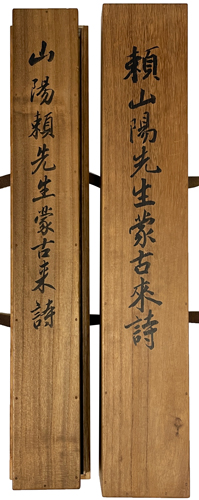 頼山陽先生蒙古來詩
山陽頼先生蒙古来詩